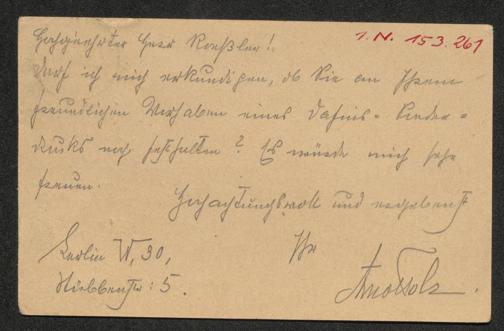 I.N. 153.261
Hochgeehrter Herr Roeßler!
Darf ich mich erkundigen, ob Sie an Ihrem
freundlichen Vorhaben eines Dafnis-Sonder-
druks noch festhalten? Es würde mich sehr
freuen.
Hochachtungsvoll und ergebenst
Ihr
Arno Holz.
Berlin W, 30,
Stübbenstr: 5.